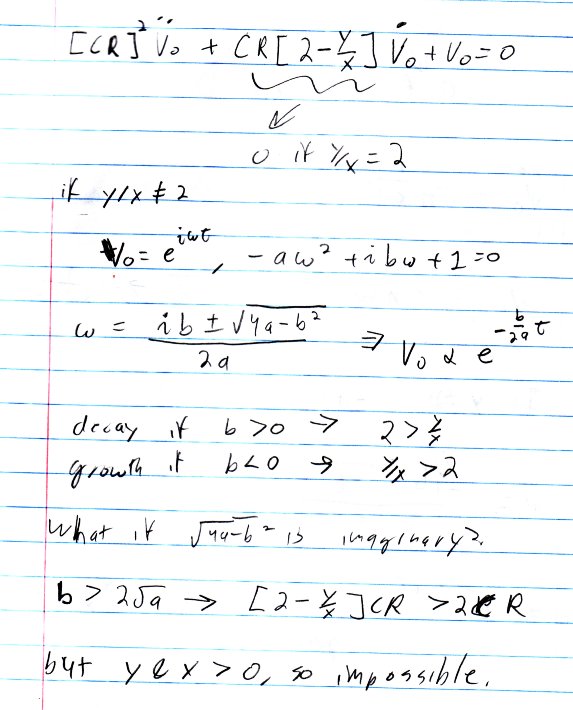 [CR]² V̈₀ + CR[2 - y/x] V̇₀ + V₀ = 0
0 if y/x = 2
if y/x ≠ 2
V₀ = e^{iωt}, -aω² + ibω + 1 = 0
ω = (ib ± √(4a-b²)) / 2a ⇒ V₀ α e^{-b/2a t}
decay if b > 0 → 2 > y/x
growth if b < 0 → y/x > 2
What if √(4a-b²) is imaginary?
b > 2√a → [2 - y/x]CR > 2CR
but y & x > 0, so impossible.